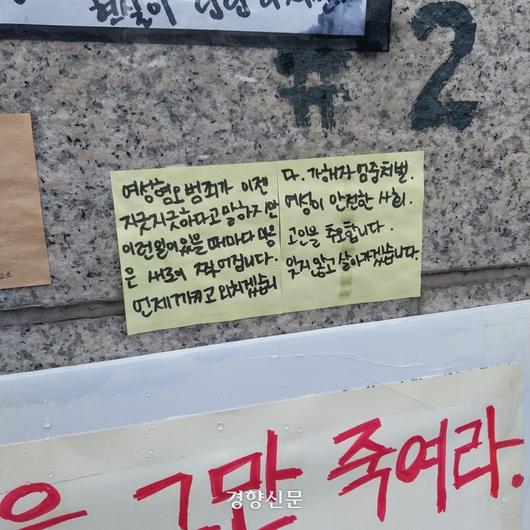 현실이
#2
여성혐오 범죄가 이젠
지긋지긋하다고 말하지만
이런 일이 있을 때마다 마음
은 새로이 찢어집니다.
언제까지고 외치겠습니
다. 가해자 엄중처벌.
여성이 안전한 사회.
고인을 추모합니다.
잊지 않고 살아가겠습니다.
은 그만 죽여라.
경향신문